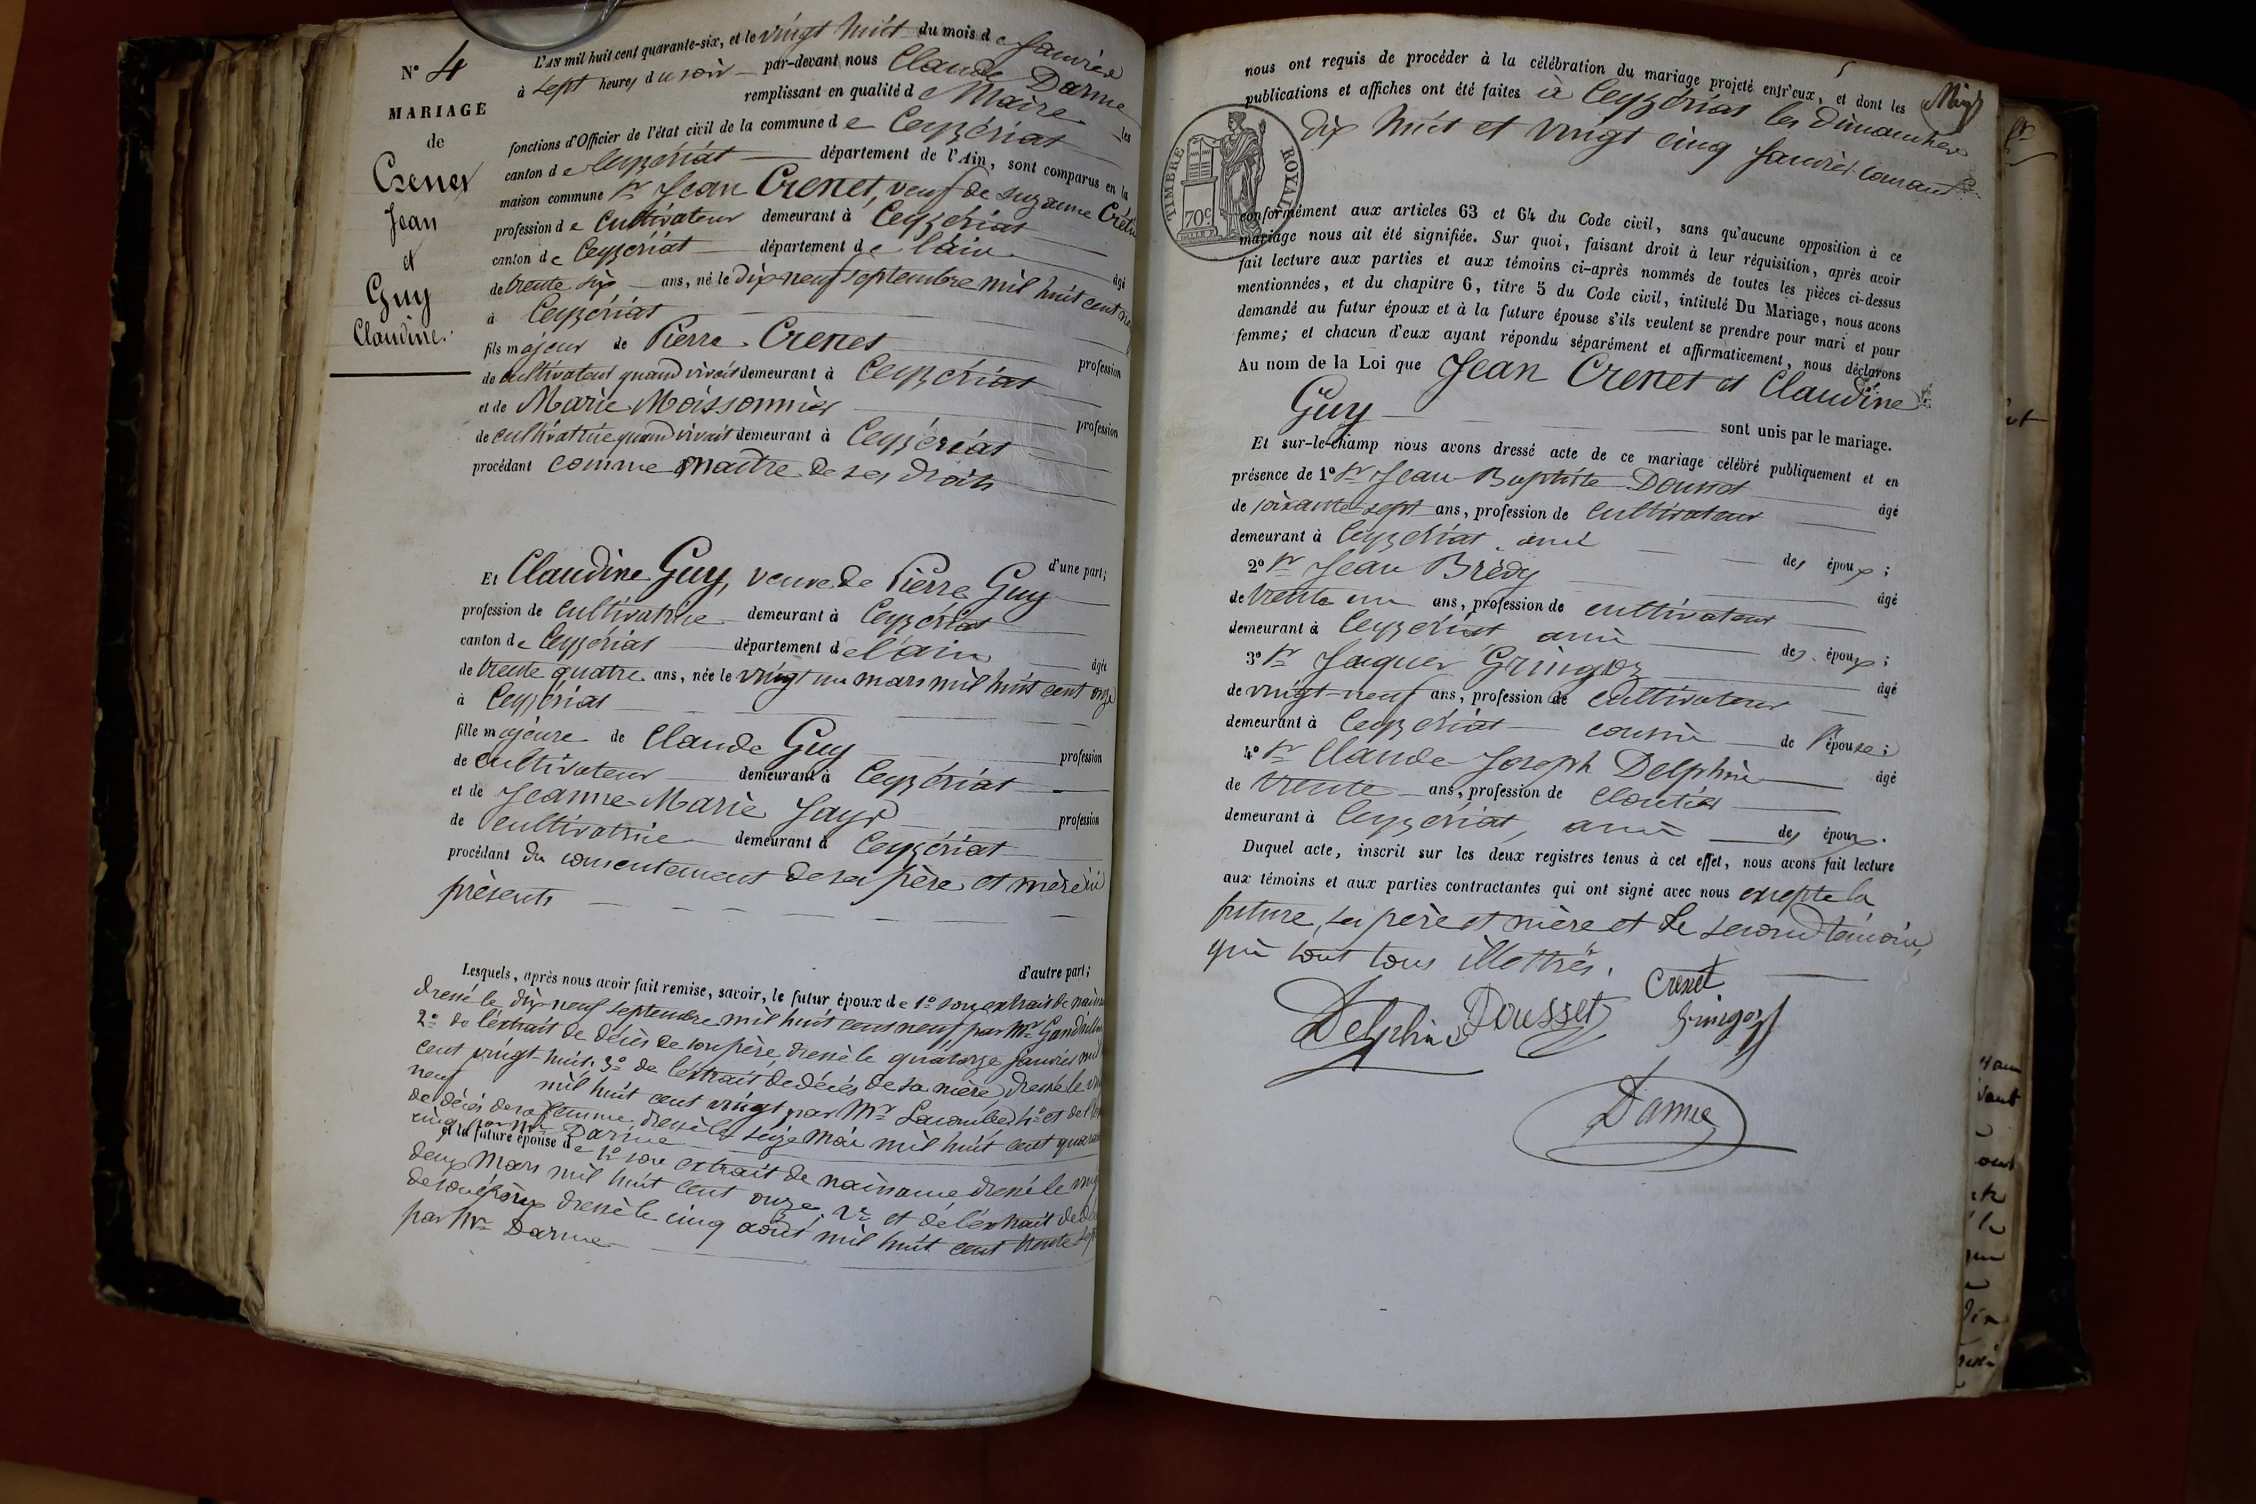 N° 4
MARIAGE
de
Crenet
Jean
et
Guy
Claudine.
L'AN mil huit cent quarante-six, et le vingt huit du mois de Janvier
à sept heures du soir par-devant nous Claude Darme
remplissant en qualité de Maire les
fonctions d'Officier de l'état civil de la commune de Ceyzériat
canton de Ceyzériat département de l'Ain, sont comparus en la
maison commune Sr Jean Crenet, veuf de Suzanne
profession de Cultivateur demeurant à Ceyzériat
canton de Ceyzériat département de l'ain âgé
de trente six ans, né le dix-neuf septembre mil huit cent
à Ceyzériat
fils majeur de Pierre Crenet profession
de cultivateur quand vivait demeurant à Ceyzériat
et de Marie Moissonnier profession
de cultivatrice quand vivait demeurant à Ceyzériat
procédant comme maître de ses droits
d'une part;
Et Claudine Guy, veuve de Pierre Guy
profession de cultivatrice demeurant à Ceyzériat
canton de Ceyzériat département de l'ain âgée
de trente quatre ans, née le vingt un mars mil huit cent onze
à Ceyzériat
fille majeure de Claude Guy profession
de cultivateur demeurant à Ceyzériat
et de Jeanne Marie Jayr profession
de cultivatrice demeurant à Ceyzériat
procédant du consentement de ses père et mère ici
présents
d'autre part;
Lesquels, après nous avoir fait remise, savoir, le futur époux de 1° son extrait de
dressé le dix neuf septembre mil huit cent neuf par Mr
2° de l'extrait de décès de son père, dressé le quatorze janvier mil
cent vingt-huit. 3° de l'extrait de décès de sa mère, dressé le
neuf mil huit cent vingt par Mr 4° et de
de décès de sa femme, dressé le seize mai mil huit cent
cinq par Mr Darme
et la future épouse de 1° son extrait de naissance dressé le
deux Mars mil huit cent onze, 2° et de l'extrait de
de son époux dressé le cinq août mil huit cent trente sept
par Mr Darme
nous ont requis de procéder à la célébration du mariage projeté entr'eux, et dont les
publications et affiches ont été faites à Ceyzériat les dimanches
dix huit et vingt cinq Janvier courant
TIMBRE ROYAL
70c.
conformément aux articles 63 et 64 du Code civil, sans qu'aucune opposition à ce
mariage nous ait été signifiée. Sur quoi, faisant droit à leur réquisition, après avoir
fait lecture aux parties et aux témoins ci-après nommés de toutes les pièces ci-dessus
mentionnées, et du chapitre 6, titre 5 du Code civil, intitulé Du Mariage, nous avons
demandé au futur époux et à la future épouse s'ils veulent se prendre pour mari et pour
femme; et chacun d'eux ayant répondu séparément et affirmativement, nous déclarons
Au nom de la Loi que Jean Crenet et Claudine
Guy sont unis par le mariage.
Et sur-le-champ nous avons dressé acte de ce mariage célébré publiquement et en
présence de 1° Sr Jean Baptiste Dousset âgé
de soixante-sept ans, profession de cultivateur
demeurant à Ceyzériat, ami des époux;
2° Sr Jean Brédy âgé
de trente un ans, profession de cultivateur
demeurant à Ceyzériat ami des époux;
3° Sr Jaques Gringoz âgé
de vingt-neuf ans, profession de cultivateur
demeurant à Ceyzériat cousin de l'épouse;
4° Sr Claude Joseph Delphin âgé
de trente ans, profession de cloutier
demeurant à Ceyzériat, ami des époux.
Duquel acte, inscrit sur les deux registres tenus à cet effet, nous avons fait lecture
aux témoins et aux parties contractantes qui ont signé avec nous excepté la
future, ses père et mère et le second témoin,
qui sont tous illettrés.
Crenet
Delphin Dousset Gringoz
Darme